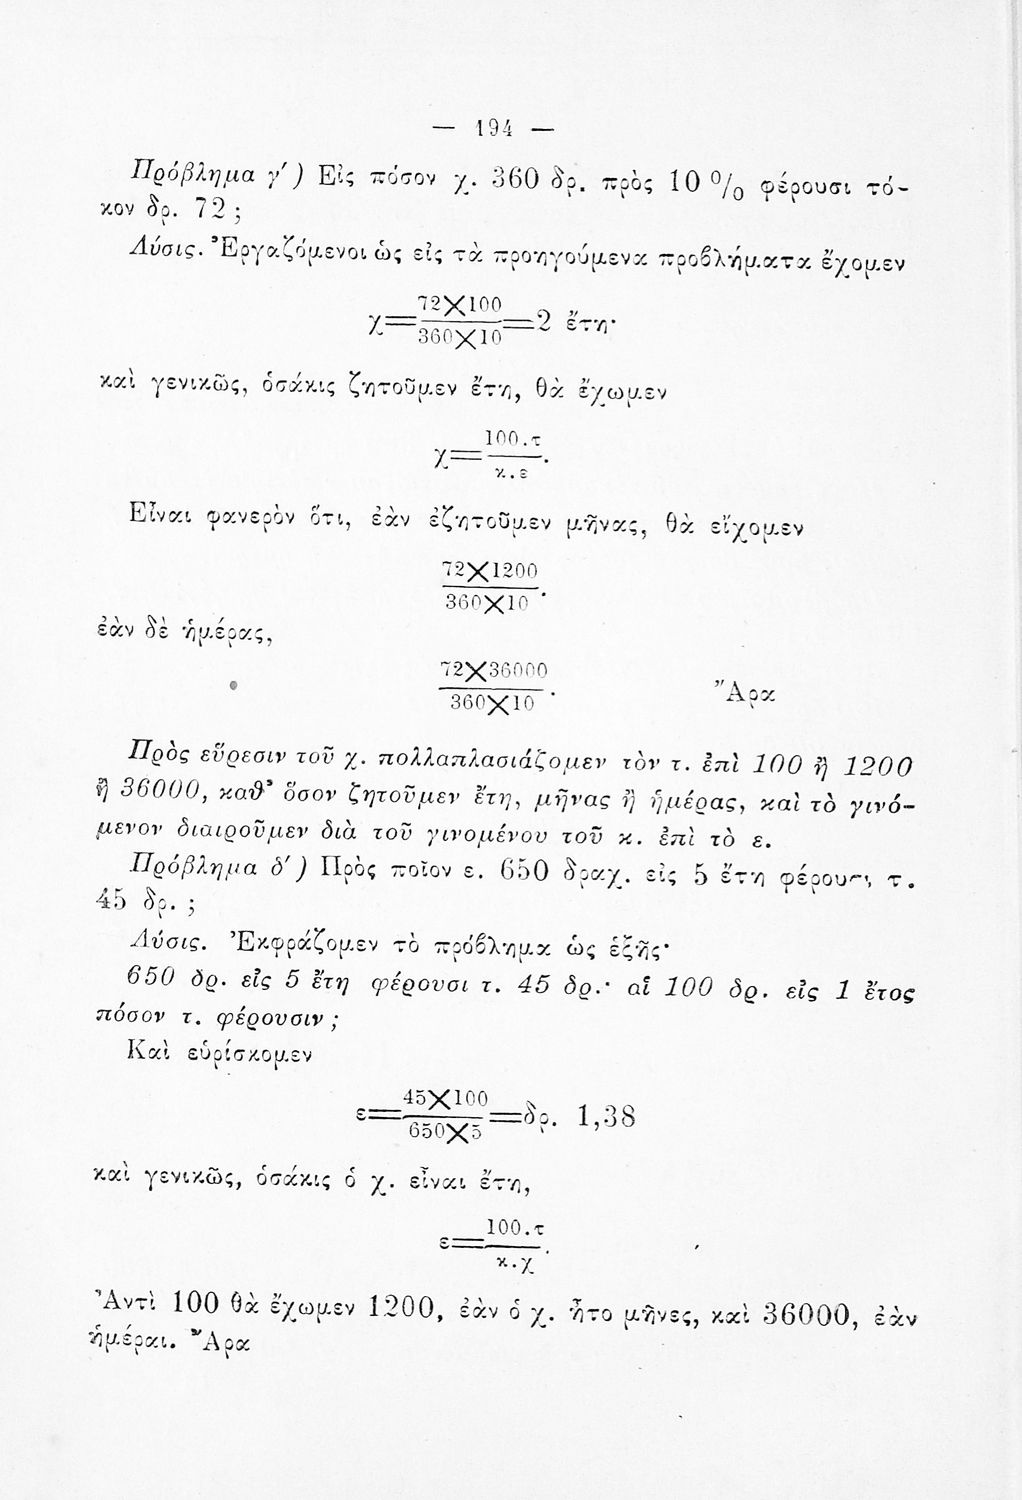 — 194 —
Πρόβλημα γʹ) Εἰς πόσον χ. 360 δρ. πρὸς 10 % φέρουσι τό-
κον δρ. 72 ;
Λύσις. Ἐργαζόμενοι ὡς εἰς τὰ προηγούμενα προβλήματα ἔχομεν
χ=72×100/360×10=2 ἔτη·
καὶ γενικῶς, ὁσάκις ζητοῦμεν ἔτη, θὰ ἔχωμεν
χ=100.τ/κ.ε.
Εἶναι φανερὸν ὅτι, ἐὰν ἐζητοῦμεν μῆνας, θὰ εἴχομεν
72×1200/360×10·
ἐὰν δὲ ἡμέρας,
72×36000/360×10. Ἄρα
Πρὸς εὕρεσιν τοῦ χ. πολλαπλασιάζομεν τὸν τ. ἐπὶ 100 ἢ 1200
ἢ 36000, καθ' ὅσον ζητοῦμεν ἔτη, μῆνας ἢ ἡμέρας, καὶ τὸ γινό-
μενον διαιροῦμεν διὰ τοῦ γινομένου τοῦ κ. ἐπὶ τὸ ε.
Πρόβλημα δʹ) Πρὸς ποῖον ε. 650 δραχ. εἰς 5 ἔτη φέρουσι τ.
45 δρ. ;
Λύσις. Ἐκφράζομεν τὸ πρόβλημα ὡς ἑξῆς·
650 δρ. εἰς 5 ἔτη φέρουσι τ. 45 δρ.· αἱ 100 δρ. εἰς 1 ἔτος
πόσον τ. φέρουσιν ;
Καὶ εὑρίσκομεν
ε=45×100/650×5=δρ. 1,38
καὶ γενικῶς, ὁσάκις ὁ χ. εἶναι ἔτη,
ε=100.τ/κ.χ.
Ἀντὶ 100 θὰ ἔχωμεν 1200, ἐὰν ὁ χ. ἦτο μῆνες, καὶ 36000, ἐὰν
ἡμέραι. Ἄρα